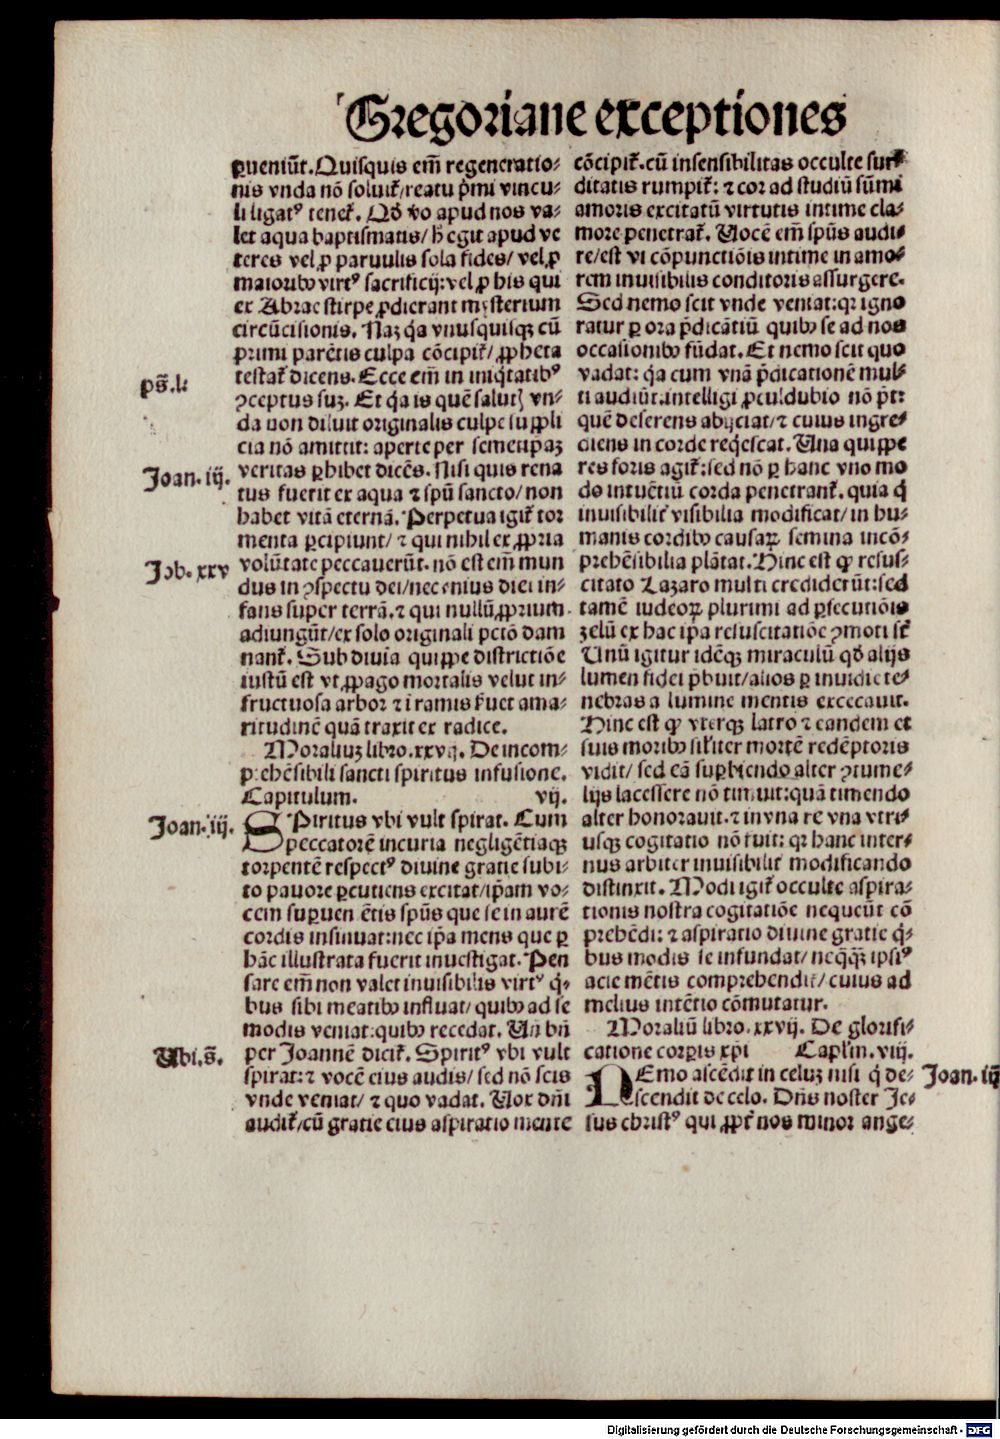 Gregoriane exceptiones
ꝑueniūt. Quisquis em̄ regeneratio⸗
nis vnda nō soluit̉/reatu pͥmi vincu⸗
li ligatꝰ tenet̉. Qd̓ v̓o apud nos va⸗
let aqua baptismatis/ h̓ egit apud ve
teres vel ꝓ paruulis sola fides/ vel ꝓ
maioribꝰ virtꝰ sacrificij: vel ꝓ his qui
ex Abrae stirpe ꝓdierant mysterium
circūcisionis. Naꝫ qͥa vnusquisqꝫ cū
primi parētis culpa cōcipit̉/ ꝓpheta
ps̄.l:
testat̉ dicens. Ecce em̄ in iniqͥtatibꝰ
ꝯceptus suꝫ. Et qͥa is quē salutꝭ vn⸗
da non diluit originalis culpe suppli
cia nō amittit: aperte per semetip̄aꝫ
Joan. iij.
veritas ꝑhibet dicēs. Nisi quis rena
tus fuerit ex aqua ⁊ spū sancto/ non
habet vitā eternā. Perpetua igit̉ tor
menta ꝑcipiunt/ ⁊ qui nihil ex ꝓpria
Job. xxv
volūtate peccauerūt. nō est em̄ mun
dus in ꝯspectu dei/ nec enius diei in⸗
fans super terrā. ⁊ qui nullū ꝓprium
adiungūt/ ex solo originali pctō dam
nant̉. Sub diuīa quippe districtiōe
iustū est vt ꝓpago mortalis velut in⸗
fructuosa arbor ⁊ i ramis s̓uet ama⸗
ritudinē quā traxit ex radice.
Moraliuꝫ libro. xxvij. De incom⸗
prehēsibili sancti spiritus infusione.
Capitulum. vij.
Joan. iij.
SPiritus vbi vult spirat. Cum
peccatorē incuria negligētiaqꝫ
torpentē respectꝰ diuine gratie subi⸗
to pauore ꝑcutiens excitat/ ip̄am vo⸗
cem suꝑuenētis spūs que se in aurē
cordis insinuat: nec ip̄a mens que ꝑ
hāc illustrata fuerit inuestigat. Pen
sare em̄ non valet inuisibilis virtꝰ qͥ⸗
bus sibi meatibꝰ influat/ quibꝰ ad se
modis veniat: quibꝰ recedat. Uñ bñ
Ubi. s̄.
per Joannē dicit̉. Spiritꝰ vbi vult
spirat: ⁊ vocē eius audis/ sed nō scis
vnde veniat/ ⁊ quo vadat. Uox dn̄i
audit̉/ cū gratie eius aspiratio mente
cōcipit̉. cū insensibilitas occulte sur⸗
ditatis rumpit̉: ⁊ cor ad studiū sūmi
amoris excitatū virtutis intime cla⸗
more penetrat̉. Uocē em̄ spūs audi⸗
re/ est vi cōpunctiōis intime in amo⸗
rem inuisibilis conditoris assurgere.
Sed nemo scit vnde veniat: qꝛ igno
ratur ꝑ ora p̄dicātiū quibꝰ se ad nos
occasionibꝰ fūdat. Et nemo scit quo
vadat: qͥa cum vnā p̄dicationē mul⸗
ti audiūt. intelligi ꝓculdubio nō pōt:
quē deserens abijciat/ ⁊ cuius ingre⸗
diens in corde reqͥescat. Una quippe
res foris agit̉: sed nō ꝑ hanc vno mo
do intuētiū corda penetrant̉. quia qͥ
inuisibilit̓ visibilia modificat/ in hu⸗
manis cordibꝰ causaꝝ semina incō⸗
prehēsibilia plātat. Hinc est ꝙ resus⸗
citato Lazaro multi crediderūt: sed
tamē iudeoꝝ plurimi ad ꝑsecutiōis
zelū ex hac ip̄a resuscitatiōe ꝯmoti sūt
Unū igitur idēqꝫ miraculū qd̓ alijs
lumen fidei p̄buit/ alios ꝑ inuidie te⸗
nebras a lumine mentis excecauit.
Hinc est ꝙ vterqꝫ latro ⁊ eandem et
suis moribꝰ sil̓iter mortē redēptoris
vidit/ sed eā suꝑbiendo alter ꝯtume⸗
lijs lacessere nō timuit: quā timendo
alter honorauit. ⁊ in vna re vna vtri⸗
usqꝫ cogitatio nō fuit: qꝛ hanc inter⸗
nus arbiter inuisibilit̓ modificando
distinxit. Modi igit̉ occulte aspira⸗
tionis nostra cogitatiōe nequeūt cō
prehēdi: ⁊ aspiratio diuine gratie qͥ⸗
bus modis se infundat/ neqͣqͣꝫ ipsiꝰ
acie mētis comprehendit̉/ cuius ad
melius intētio cōmutatur.
Moraliū libro. xxvij. De glorifi⸗
catione corꝑis xp̄i Caplm̄. viij.
Joan. iij
NEmo ascēdit in celuꝫ nisi qͥ de⸗
scendit de celo. Dn̄s noster Je⸗
sus christꝰ qui ꝓpt̓ nos minor ange⸗
Digitalisierung gefördert durch die Deutsche Forschungsgemeinschaft - DFG